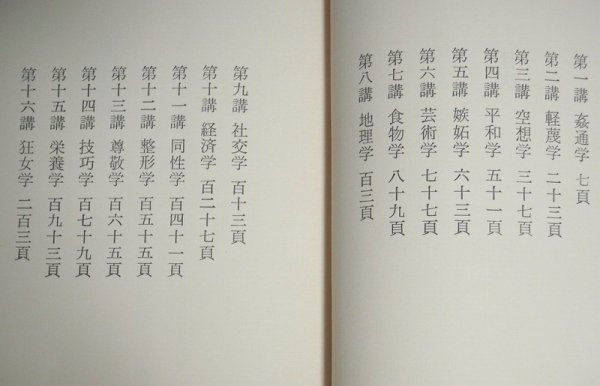 第一講 姦通学 七頁
第二講 軽蔑学 二十三頁
第三講 空想学 三十七頁
第四講 平和学 五十一頁
第五講 嫉妬学 六十三頁
第六講 芸術学 七十七頁
第七講 食物学 八十九頁
第八講 地理学 百三頁
第九講 社交学 百十三頁
第十講 経済学 百二十七頁
第十一講 同性学 百四十一頁
第十二講 整形学 百五十五頁
第十三講 尊敬学 百六十五頁
第十四講 技巧学 百七十九頁
第十五講 栄養学 百九十三頁
第十六講 狂女学 二百三頁